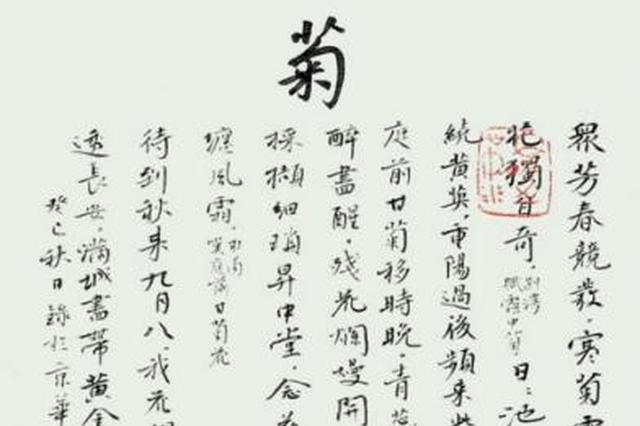 菊
眾芳春競發，寒菊露
花獨自奇。日日池
繞黃英，重陽過後頻來
庭前甘菊移時晚，青蕊
醉盡醒，殘花爛熳開
採擷細瑣昇中堂，念
纏風霜。杜甫
嘆庭前甘菊花
待到秋來九月八，我花
透長安，滿城盡帶黃金
癸巳秋日錄於京華